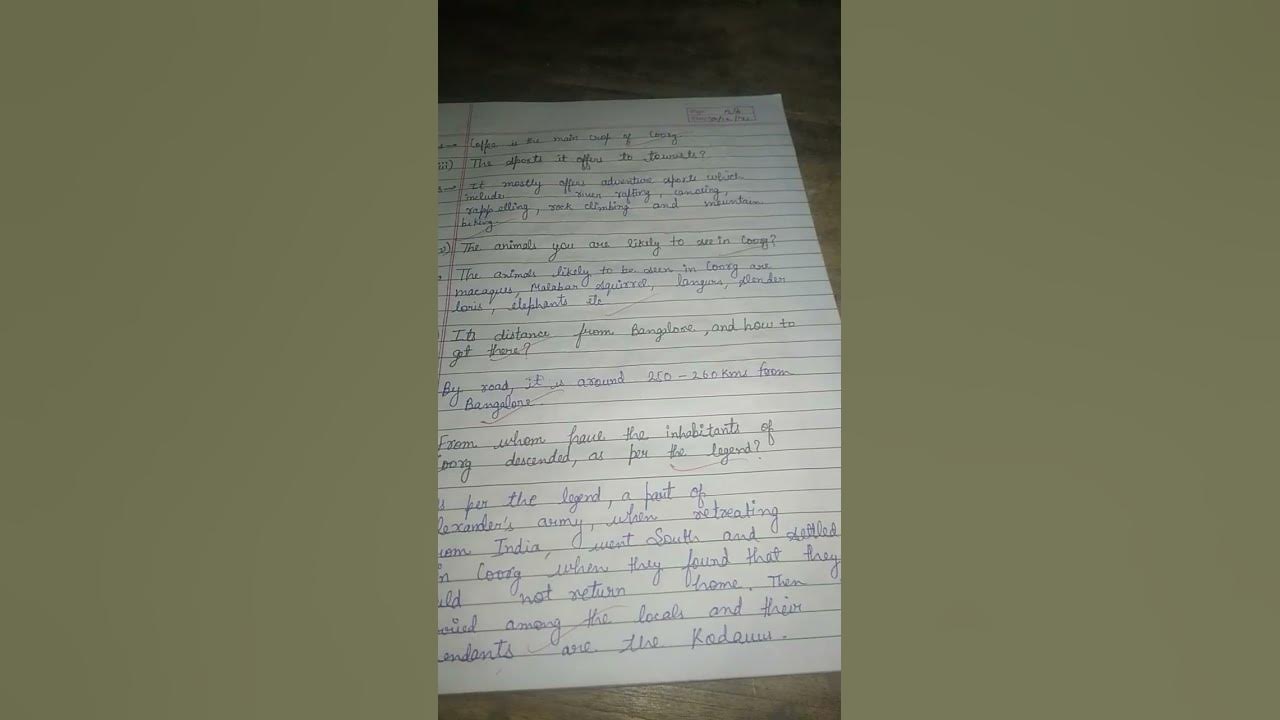 Coffee is the main crop of Coorg.
iii) The sports it offers to tourists?
It mostly offers adventure sports which
include river rafting, canoeing,
rappelling, rock climbing and mountain
biking.
The animals you are likely to see in Coorg?
The animals likely to be seen in Coorg are
macaques, Malabar squirrel, langurs, slender
loris, elephants etc
Its distance from Bangalore, and how to
get there?
By road, it is around 250-260 Kms from
Bangalore.
From whom have the inhabitants of
oorg descended, as per the legend?
s per the legend, a part of
lexander's army, when retreating
rom India, went South and settled
n Coorg when they found that they
uld not return home. Then
rried among the locals and their
endants are the